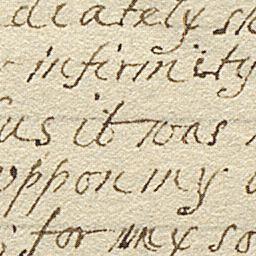 diately
infirmity
us it was
uppon my
for my so